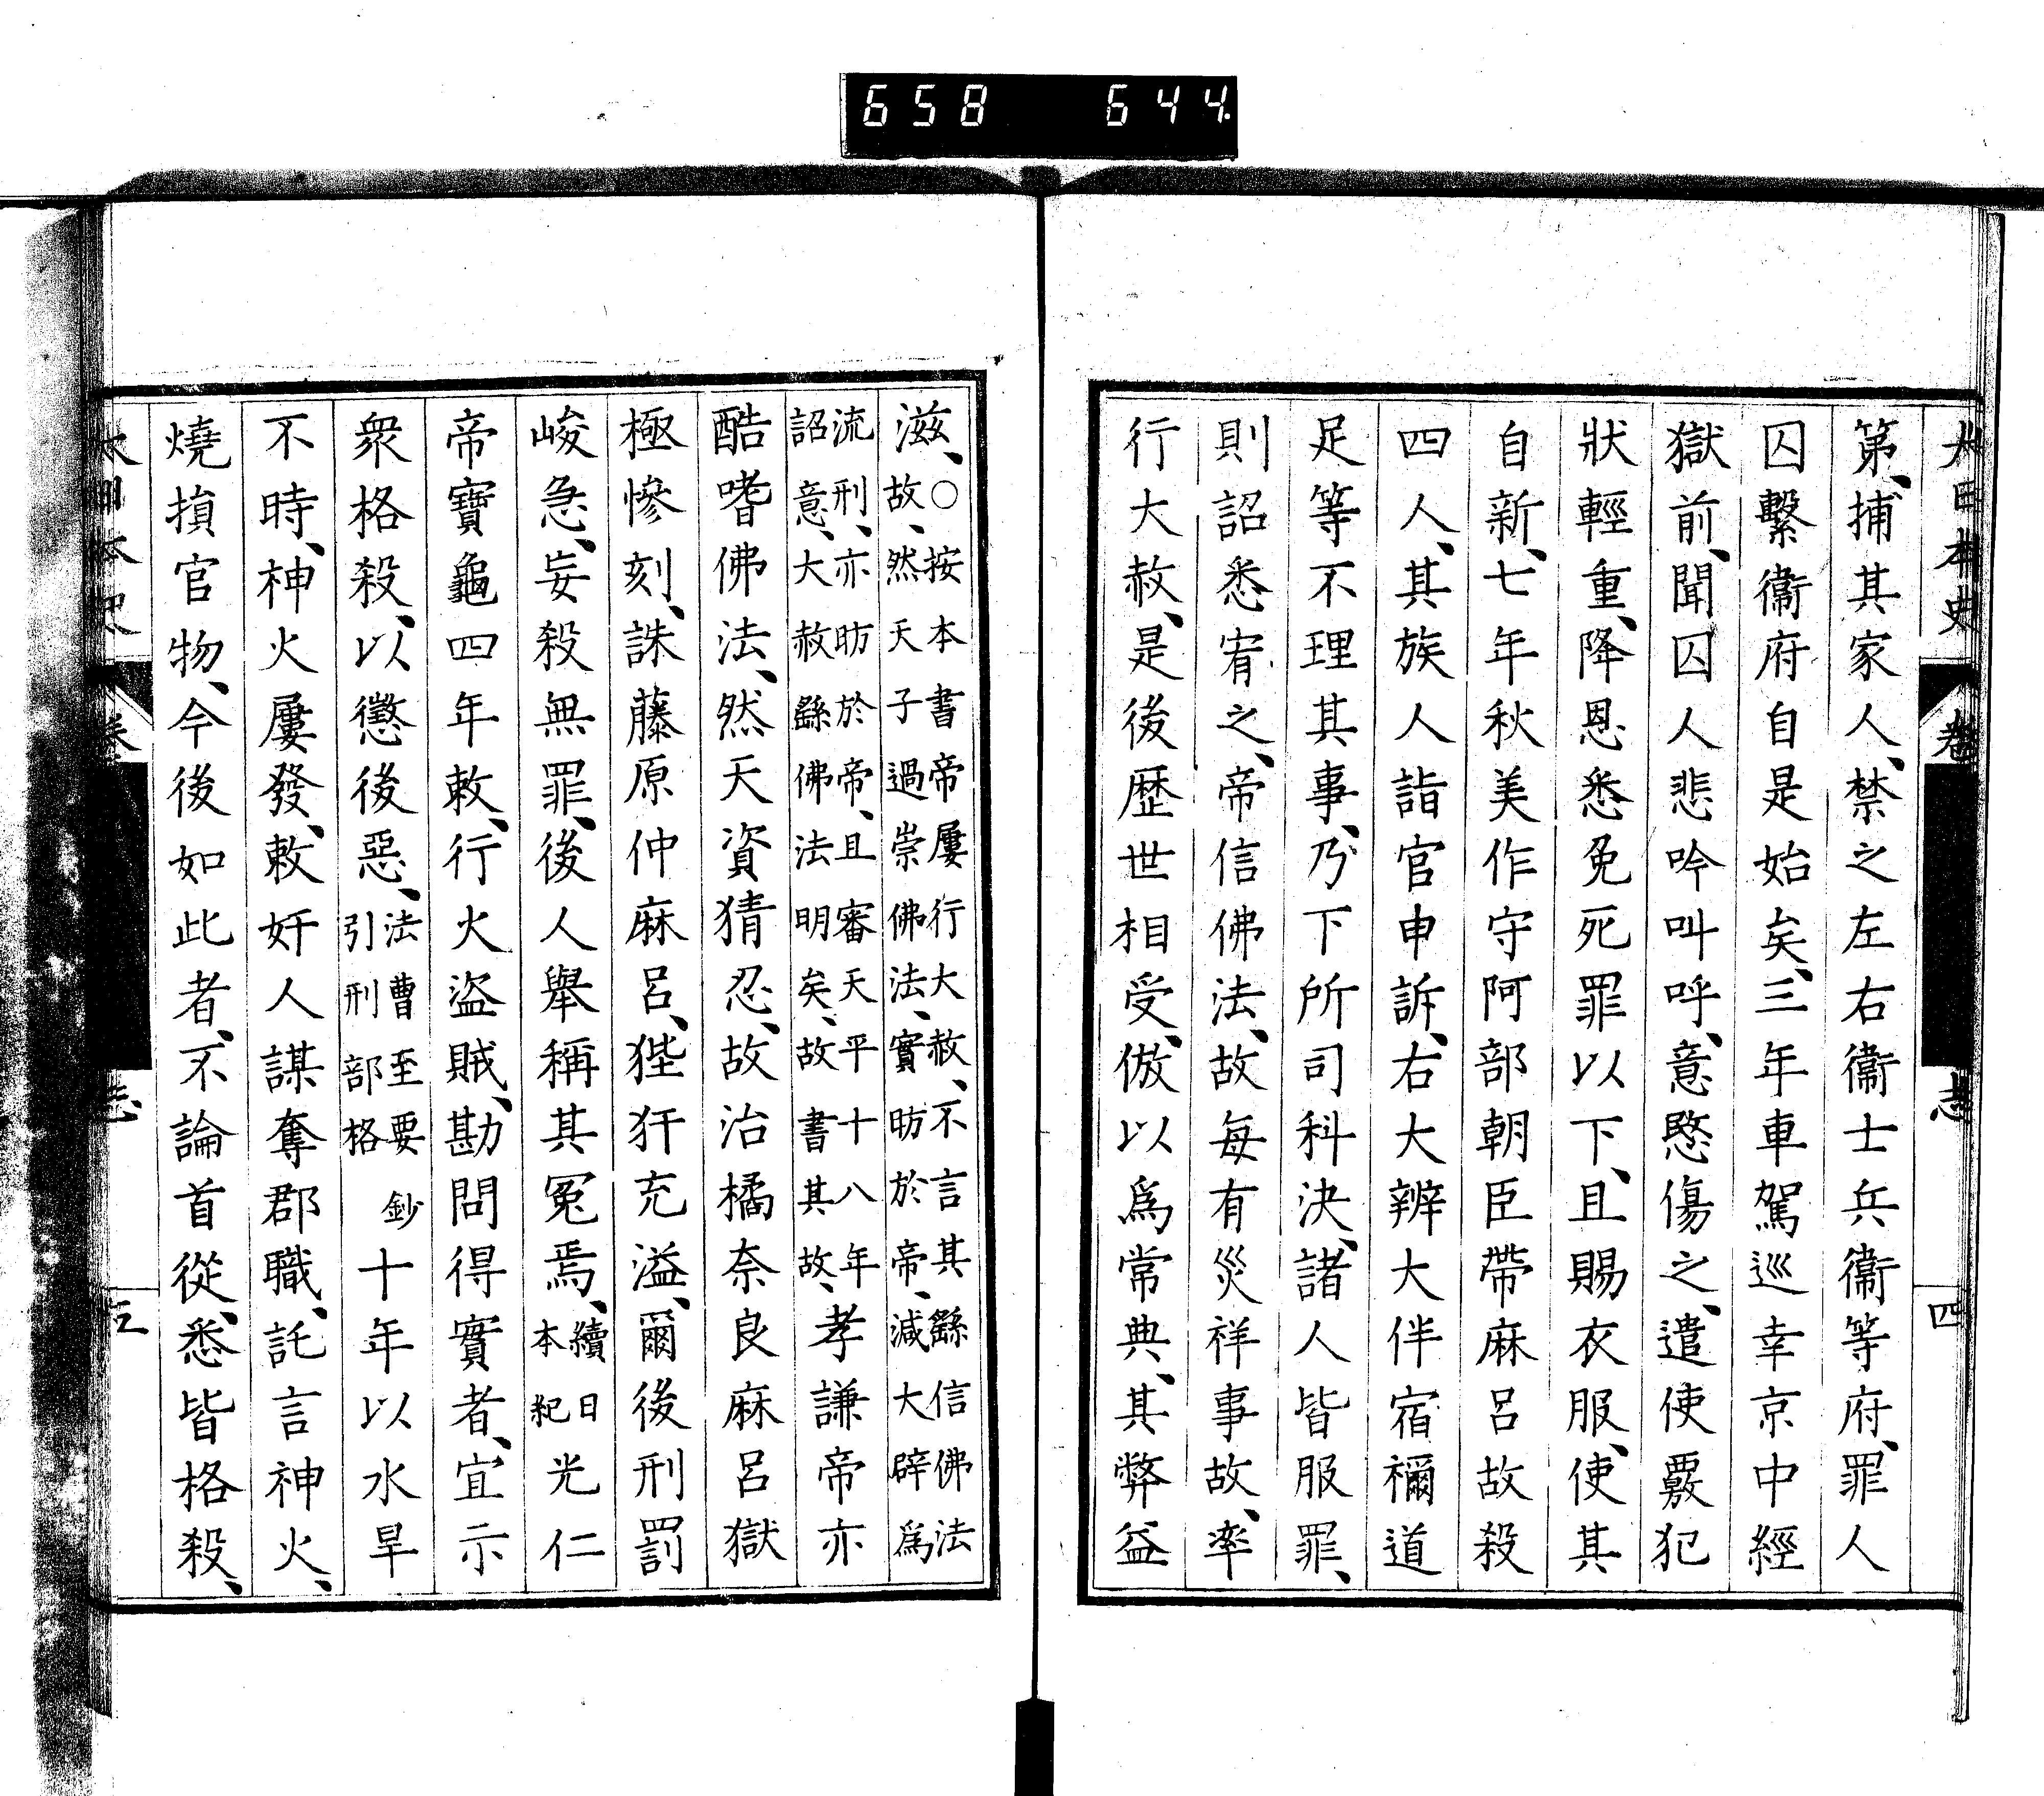 658 644
大日本史 卷 志 四
第、捕其家人、禁之左右衞士兵衞等府、罪人
囚繫衞府自是始矣、三年車駕巡幸京中經
獄前、聞囚人悲吟叫呼、意愍傷之、遣使覈犯
狀輕重、降恩悉免死罪以下、且賜衣服、使其
自新、七年秋美作守阿部朝臣帶麻呂故殺
四人、其族人詣官申訴、右大辨大伴宿禰道
足等不理其事、乃下所司科決、諸人皆服罪、
則詔悉宥之、帝信佛法、故每有災祥事故、率
行大赦、是後歷世相受、倣以爲常典、其弊益
滋、○按本書帝屢行大赦、不言其繇信佛法
故、然天子過崇佛法、實昉於帝、減大辟爲
流刑、亦昉於帝、且審天平十八年
詔意、大赦繇佛法明矣、故書其故、孝謙帝亦
酷嗜佛法、然天資猜忍、故治橘奈良麻呂獄
極慘刻、誅藤原仲麻呂、狴犴充溢、爾後刑罰
峻急、妄殺無罪、後人舉稱其冤焉、續日本紀光仁
帝寶龜四年敕、行火盜賊、勘問得實者、宜示
衆格殺、以懲後惡、法曹至要鈔引刑部格十年以水旱
不時、神火屢發、敕奸人謀奪郡職、託言神火、
燒損官物、今後如此者、不論首從、悉皆格殺、
大日本史 卷 志 五